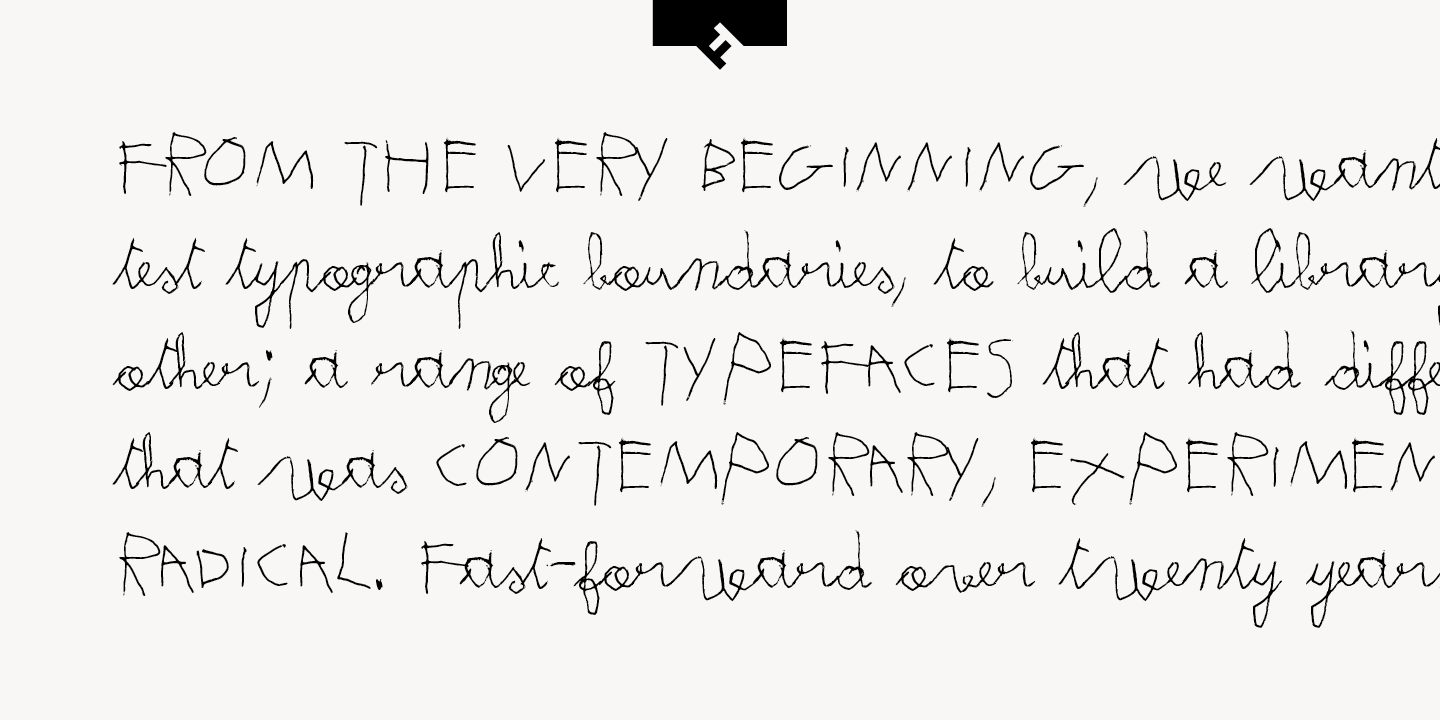 FROM THE VERY BEGINNING, we want
test typographic boundaries, to build a librar
other; a range of TYPEFACES that had diffe
that was CONTEMPORARY, EXPERIMEN
RADICAL. Fast-forward over twenty year